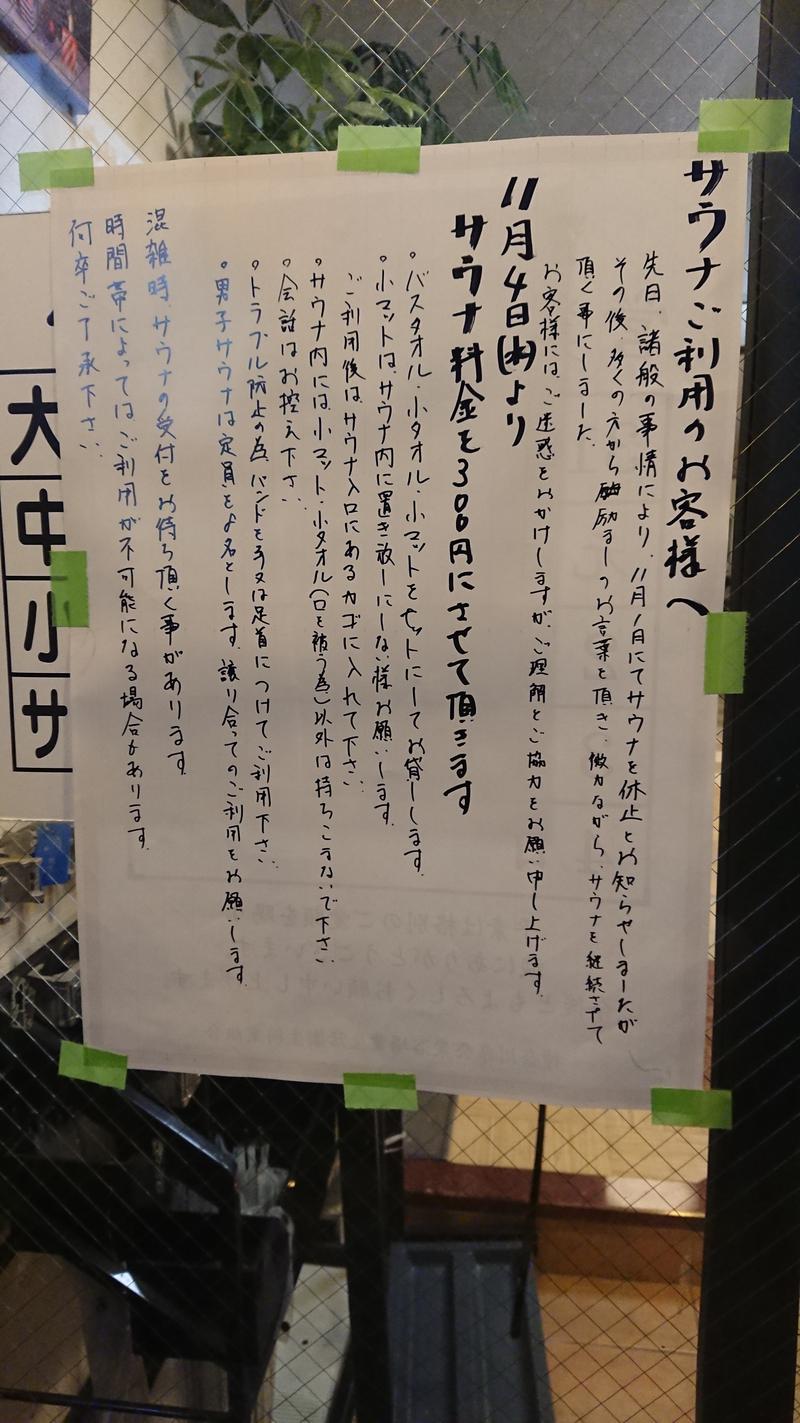 サウナご利用のお客様へ
先日、諸般の事情により、11月1日にてサウナを休止とお知らせしましたが
その後、多くの方から励ましのお言葉を頂き、微力ながら、サウナを継続させて
頂く事にしました。
お客様には、ご迷惑をおかけしますが、ご理解とご協力をお願い申し上げます。
11月4日(水)より
サウナ料金を300円にさせて頂きます
。バスタオル・小タオル・小マットをセットにしてお貸しします。
。小マットは、サウナ内に置き放しにしない様お願いします。
ご利用後は、サウナ入口にあるカゴに入れて下さい。
。サウナ内には、小マット・小タオル(口を被う為)以外は持ちこまないで下さい。
。会話はお控え下さい。
。トラブル防止の為、バンドを手又は足首につけてご利用下さい。
。男子サウナは定員を 名とします。譲り合ってのご利用をお願いします。
混雑時、サウナの受付をお待ち頂く事があります。
時間帯によっては、ご利用が不可能になる場合もあります。
何卒ご了承下さい。
大
中
小
サ